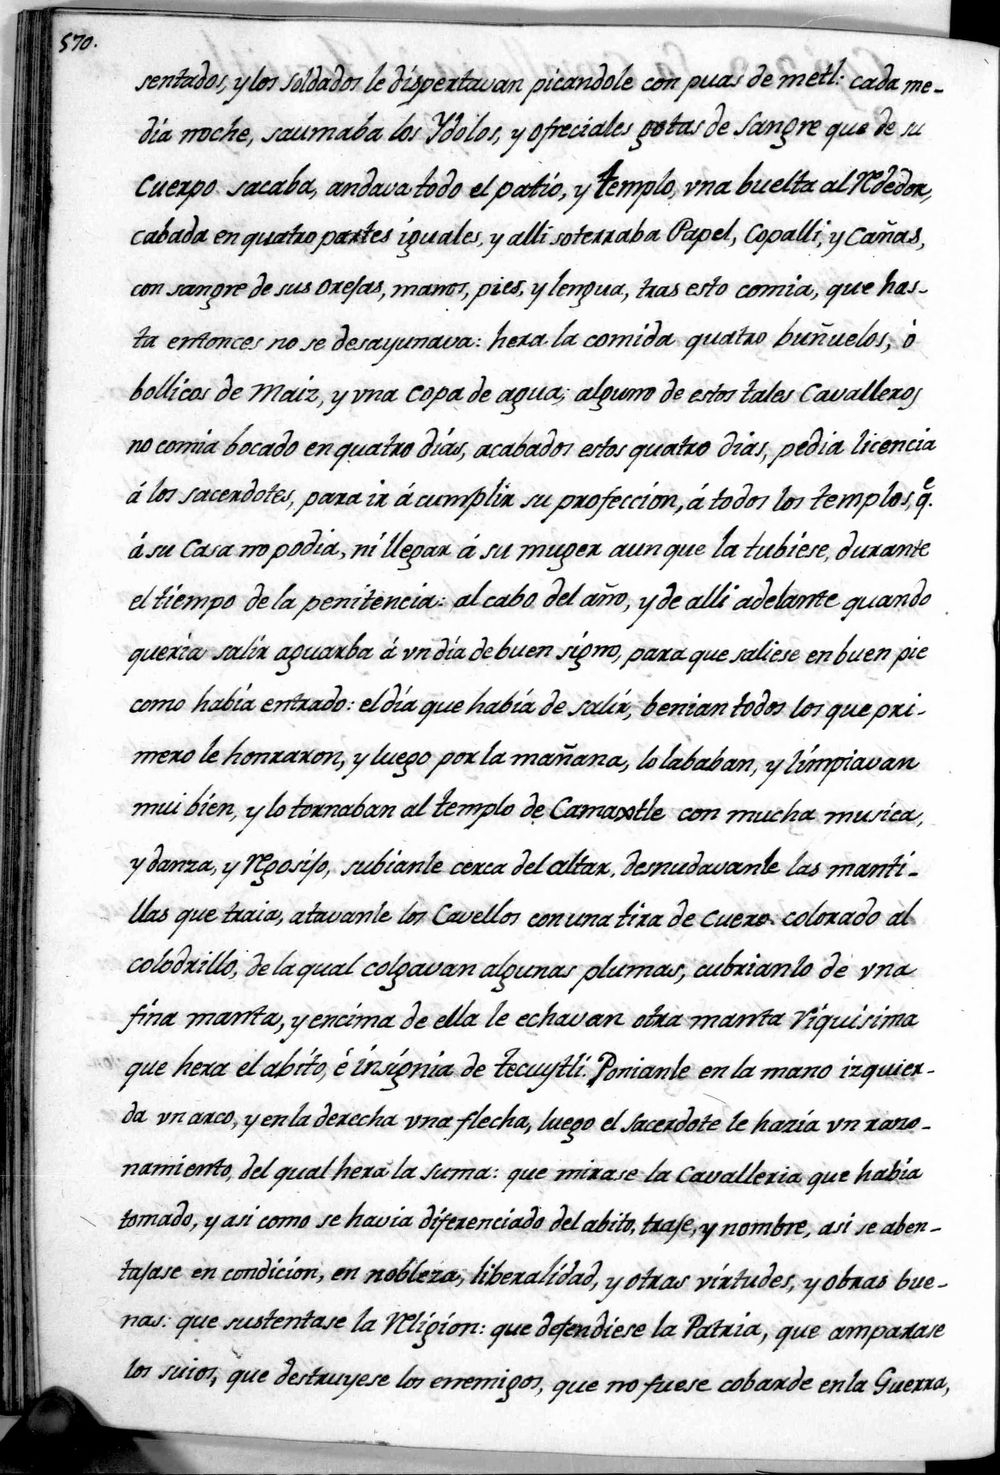 570.
sentados, y los soldados le dispertavan picandole con puas de metl: cada me-
dia noche, saumaba los Ydolos, y ofreciales gotas de sangre que de su
cuerpo sacaba, andava todo el patio, y templo, vna buelta al Rededor,
cabada en quatro partes iguales, y alli soterraba Papel, Copalli, y Cañas,
con sangre de sus orejas, manos, pies, y lengua, tras esto comia, que has-
ta entonces no se desayunava: hera la comida quatro buñuelos, ò
bollicos de Maiz, y vna copa de agua; alguno de estos tales Cavalleros
no comia bocado en quatro dias, acabados estos quatro dias, pedia licencia
á los sacerdotes, para ir á cumplir su profeccion, á todos los templos, q.e
á su Casa no podia, ni llegar á su muger aun que la tubiese, durante
el tiempo de la penitencia: al cabo del año, y de alli adelante quando
queria salir aguarba á vn dia de buen signo, para que saliese en buen pie
como habia entrado: el dia que habia de salir, benian todos los que pri-
mero le honraron, y luego por la mañana, lo lababan, y limpiavan
mui bien, y lo tornaban al templo de Camaxtle con mucha musica,
y danza, y Rgosijo, subianle cerca del altar, desnudavanle las manti-
llas que traia, atavanle los Cavellos con una tira de cuero colorado al
colodrillo, de la qual colgavan algunas plumas, cubrianlo de vna
fina manta, y encima de ella le echavan otra manta Riquisima
que hera el abito, é insignia de tecuytli. Ponianle en la mano izquier-
da vn arco, y en la derecha vna flecha, luego el sacerdote le hazia vn razo-
namiento, del qual hera la suma: que mirase la Cavalleria que habia
tomado, y asi como se havia diferenciado del abito, traje, y nombre, asi se aben-
tajase en condicion, en nobleza, liberalidad, y otras virtudes, y obras bue-
nas: que sustentase la Religion: que defendiese la Patria, que amparase
los suios, que destruyese los enemigos, que no fuese cobarde en la Guerra,